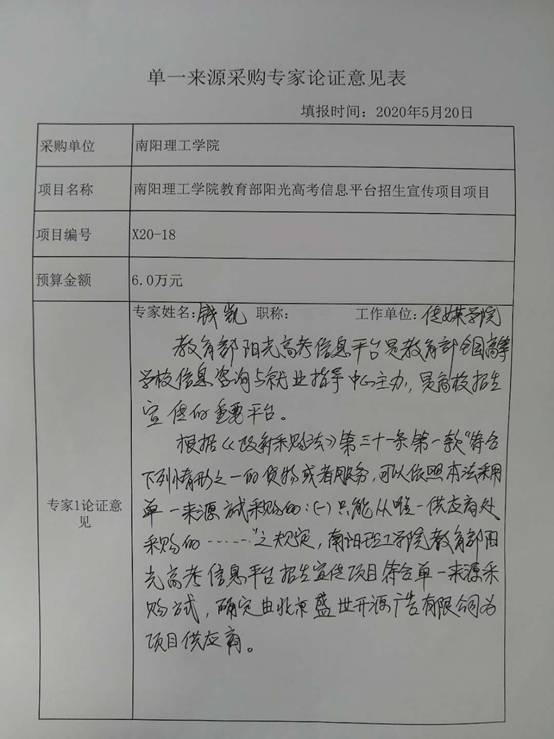 单一来源采购专家论证意见表
填报时间：2020年5月20日
采购单位 南阳理工学院
项目名称 南阳理工学院教育部阳光高考信息平台招生宣传项目项目
项目编号 X20-18
预算金额 6.0万元
专家姓名：钱凯 职称： 工作单位：传媒学院
教育部阳光高考信息平台是教育部全国高等
学校信息咨询与就业指导中心主办，是高校招生
宣传的重要平台。
根据《政府采购法》第三十一条第一款“符合
下列情形之一的货物或者服务，可以依照本法采用
单一来源方式采购的：(一)只能从唯一供应商处
专家1论证意
见
采购的……”之规定，南阳理工学院教育部阳
光高考信息平台招生宣传项目符合单一来源采
购方式，确定由北京盛世开源广告有限公司为
项目供应商。